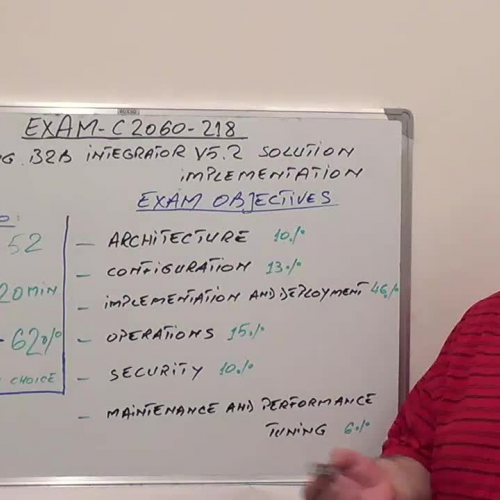 EXAM-C2060-218
NG B2B INTEGRATOR V5.2 SOLUTION
IMPLEMENTATION
EXAM OBJECTIVES
52
20MIN
-62%
CHOICE
- ARCHITECTURE 10%
- CONFIGURATION 13%
- IMPLEMENTATION AND DEPLOYMENT 46%
- OPERATIONS 15%
- SECURITY 10%
- MAINTENANCE AND PERFORMANCE
TUNING 6%